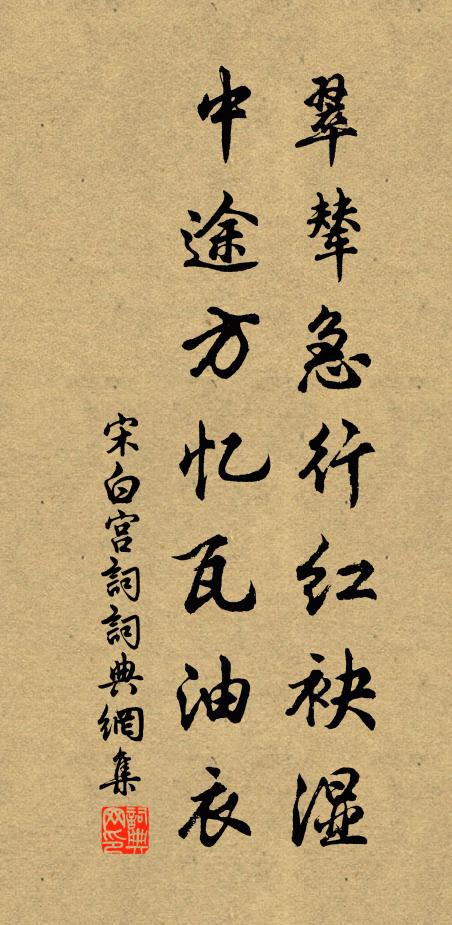 翠辇急行红袂湿
中途方忆瓦油衣
宋白宫詞詞典網集
詞典网印